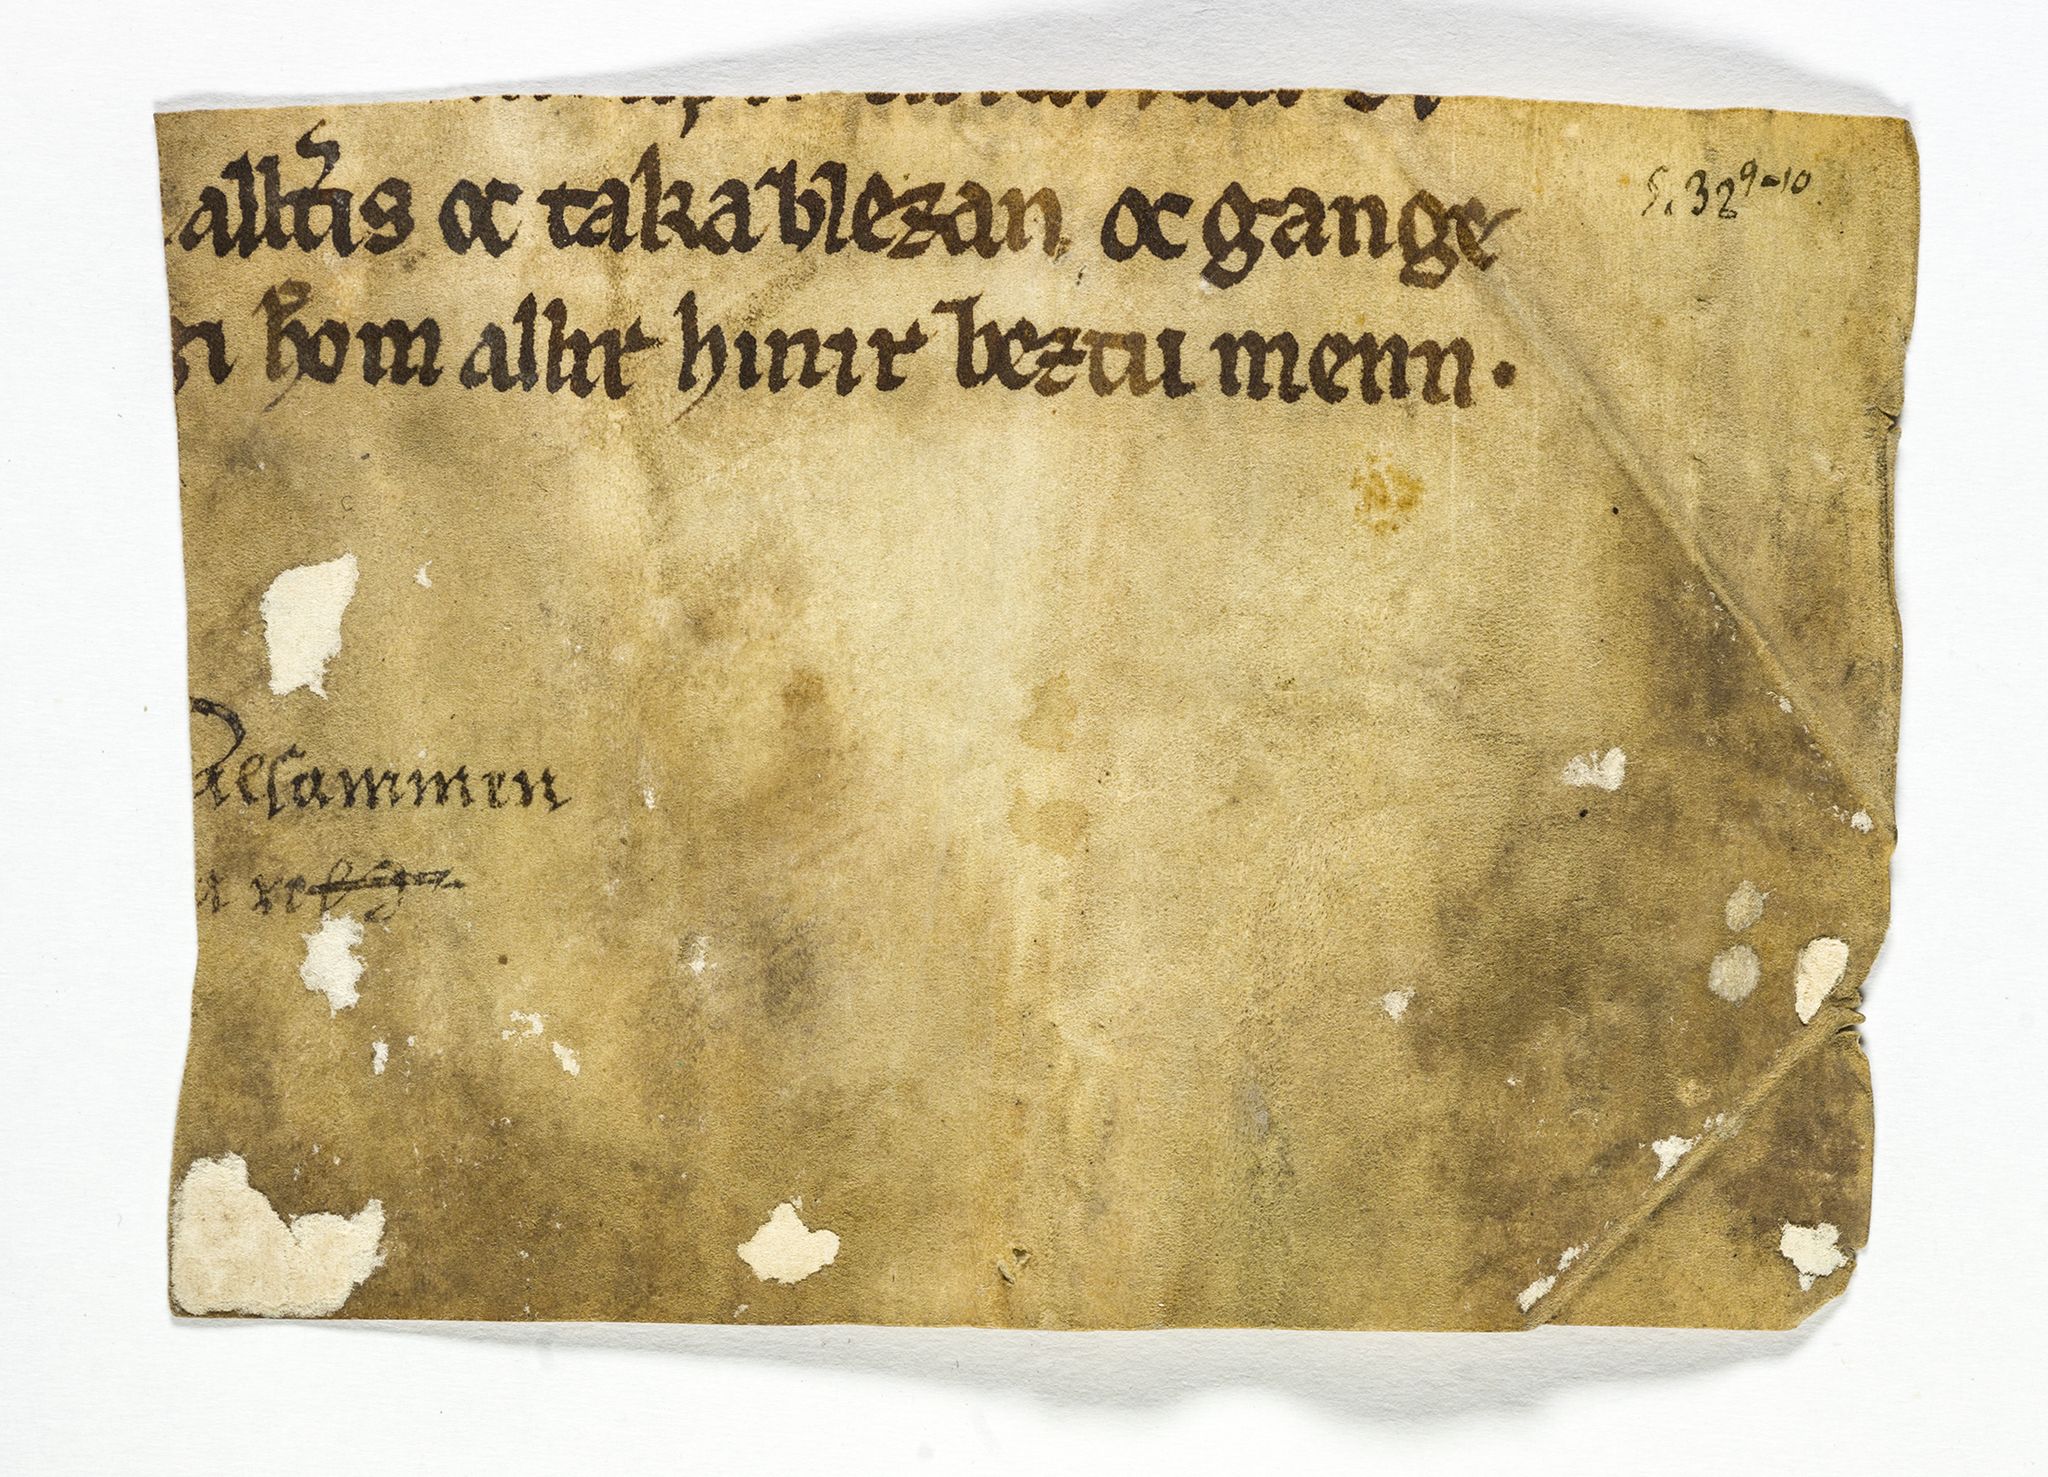 alltíſ oc taka blezan oc gange
gi hom allir hinir beztu menn.
S. 32 9-10
alsammen